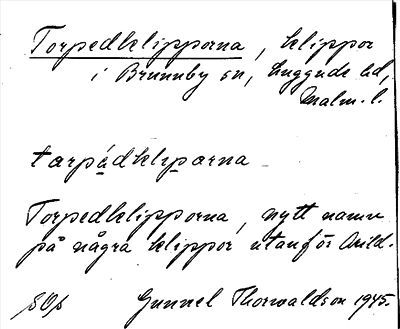 Torpedklipporna, klippor
i Brunnby sn, Luggude hd,
Malm. l.
tarpǻdkliparna
Torpedklipporna, nytt namn
på några klippor utanför Arild.
Gunnel Thorwaldson 1945.